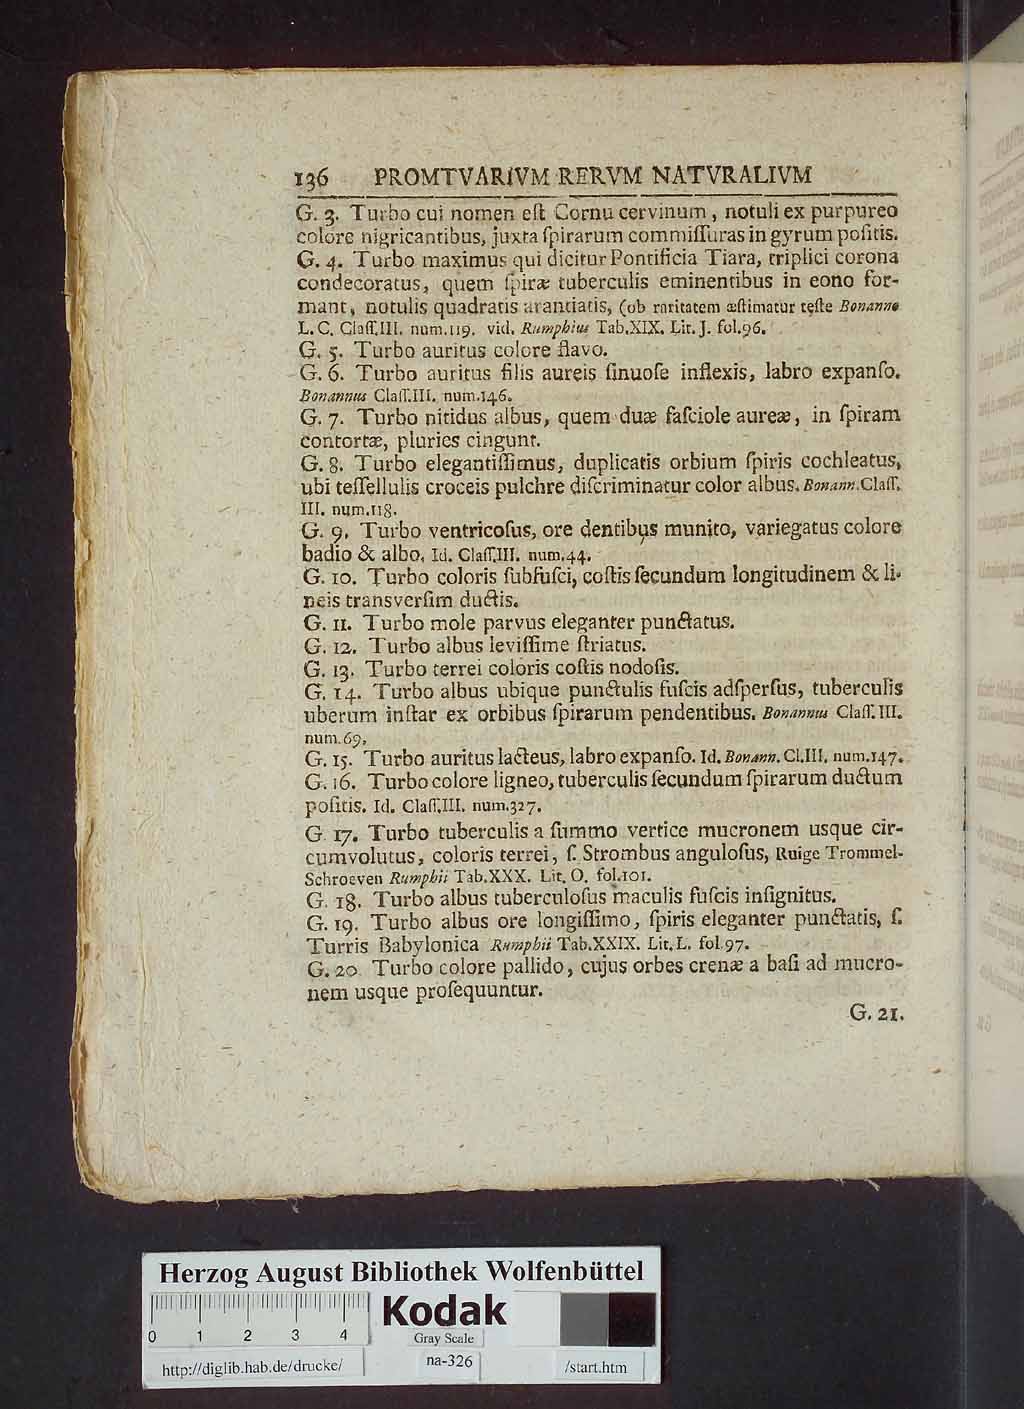 136 PROMTVARIVM RERVM NATVRALIVM
G. 3. Turbo cui nomen eſt Cornu cervinum, notuli ex purpureo
colore nigricantibus, juxta ſpirarum commiſſuras in gyrum poſitis.
G. 4. Turbo maximus qui dicitur Pontificia Tiara, triplici corona
condecoratus, quem ſpiræ tuberculis eminentibus in eono for-
mant, notulis quadratis arantiatis, (ob raritatem æſtimatur teſte Bonanno
L. C. Claſſ.III. num.119. vid. Rumphius Tab.XIX. Lit. J. fol.96.
G. 5. Turbo auritus colore flavo.
G. 6. Turbo auritus filis aureis ſinuoſe inflexis, labro expanſo.
Bonannus Claſſ.III. num.146.
G. 7. Turbo nitidus albus, quem duæ faſciole aureæ, in ſpiram
contortæ, pluries cingunt.
G. 8. Turbo elegantiſſimus, duplicatis orbium ſpiris cochleatus,
ubi teſſellulis croceis pulchre diſcriminatur color albus. Bonann. Claſſ.
III. num.118.
G. 9. Turbo ventricoſus, ore dentibus munito, variegatus colore
badio & albo. Id. Claſſ.III. num.44.
G. 10. Turbo coloris ſubfuſci, coſtis ſecundum longitudinem & li-
neis transverſim ductis.
G. 11. Turbo mole parvus eleganter punctatus.
G. 12. Turbo albus leviſſime ſtriatus.
G. 13. Turbo terrei coloris coſtis nodoſis.
G. 14. Turbo albus ubique punctulis fuſcis adſperſus, tuberculis
uberum inſtar ex orbibus ſpirarum pendentibus. Bonannus Claſſ. III.
num.69.
G. 15. Turbo auritus lacteus, labro expanſo. Id. Bonann. Cl.III. num.147.
G. 16. Turbo colore ligneo, tuberculis ſecundum ſpirarum ductum
poſitis. Id. Claſſ.III. num.327.
G. 17. Turbo tuberculis a ſummo vertice mucronem usque cir-
cumvolutus, coloris terrei, ſ. Strombus anguloſus, Ruige Trommel-
Schroeven Rumphii Tab.XXX. Lit. O. fol.101.
G. 18. Turbo albus tuberculoſus maculis fuſcis inſignitus.
G. 19. Turbo albus ore longiſſimo, ſpiris eleganter punctatis, ſ.
Turris Babylonica Rumphii Tab.XXIX. Lit. L. fol.97.
G. 20 Turbo colore pallido, cujus orbes crenæ a baſi ad mucro-
nem usque proſequuntur.
G. 21.
Herzog August Bibliothek Wolfenbüttel
0 1 2 3 4
Kodak
Gray Scale
http://diglib.hab.de/drucke/ na-326 /start.htm